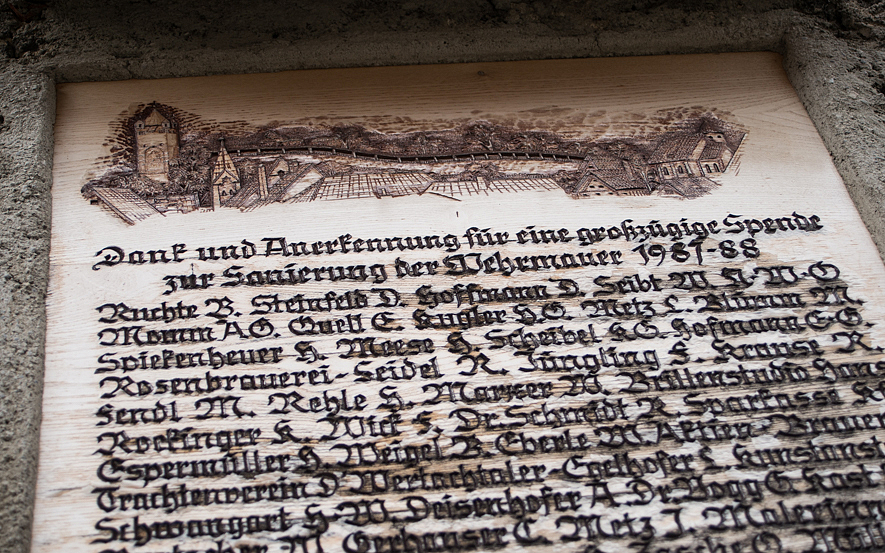 Dank und Anerkennung für eine großzügige Spende
zur Sanierung der Wehrmauer 1987-88
Ruchte B. Steinfeld D. Hoffmann D. Seibt M. J. M. O
Momm A.G. Quell E. Kugler H.G. Metz L. Blümm M.
Spiekenheuer H. Meese H. Scheibel K.G. Hofmann E.G.
Rosenbrauerei-Seidel R. Jüngling F. Krause R.
Fendl M. Rehle H. M. Brillenstudio Hans
Rockinger K. Wick F. Dr. Schmidt R. Sparkasse
Espermüller H. Weigel B. Eberle M. Aktien-Brauer
Trachtenverein D'Wertachtaler-Egelhofer L. Kunstanst
Schwangart H.W. Deisenhofer A. Dr. Bogg G.
M. Gerhauser C. Metz J. Malermeis